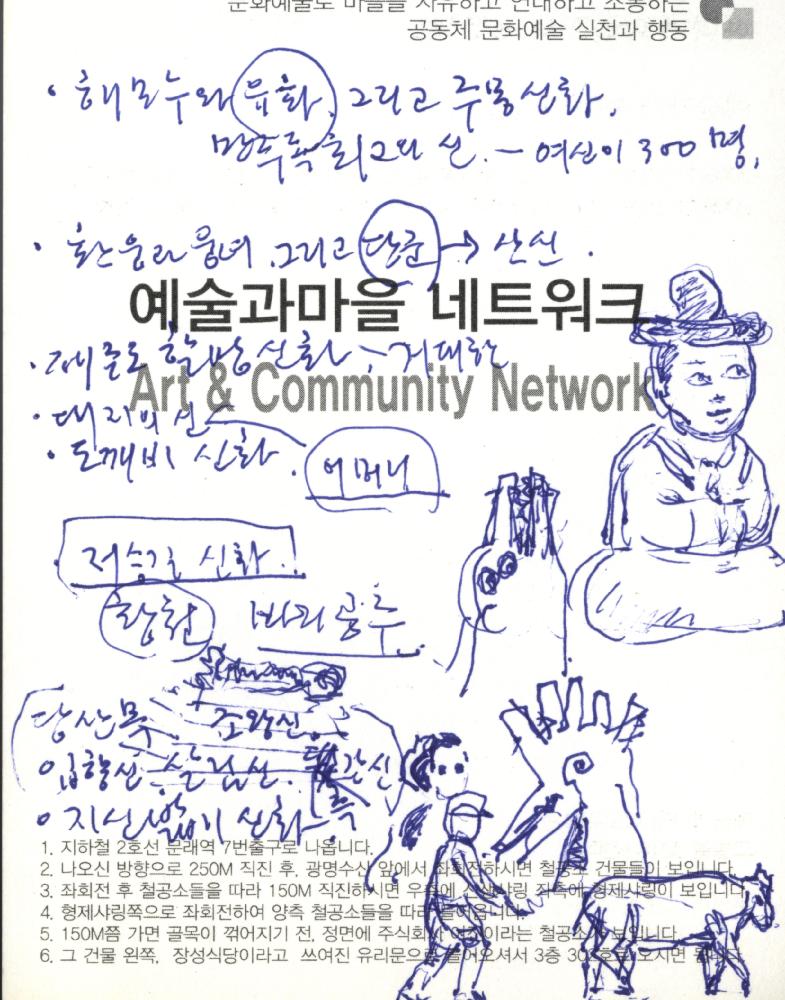 문화예술로 마을을 자유하고 연대하고 소통하는
공동체 문화예술 실천과 행동
· 해모수와 유화, 그리고 주몽신화.
신. — 여신이 300 명.
· 환웅과 웅녀, 그리고 단군 → 산신.
예술과마을 네트워크
· 제주도 할망신화 ; 거대한
Art & Community Network
· 대지의 신
· 도깨비 신화.
어머니
저승길 신화.
황천 바리공주.
당산목 조왕신.
입향신 살림신. 측간신
· 지신밟기 신화
1. 지하철 2호선 문래역 7번출구로 나옵니다.
2. 나오신 방향으로 250M 직진 후, 광명수산 앞에서 좌회전하시면 철공소 건물들이 보입니다.
3. 좌회전 후 철공소들을 따라 150M 직진하시면 우측에 신성샤링 좌측에 형제샤링이 보입니다.
4. 형제샤링쪽으로 좌회전하여 양측 철공소들을 따라 들어옵니다.
5. 150M쯤 가면 골목이 꺾어지기 전, 정면에 주식회사 이라는 철공소가 보입니다.
6. 그 건물 왼쪽, 장성식당이라고 쓰여진 유리문으로 들어오셔서 3층 오시면 됩니다.